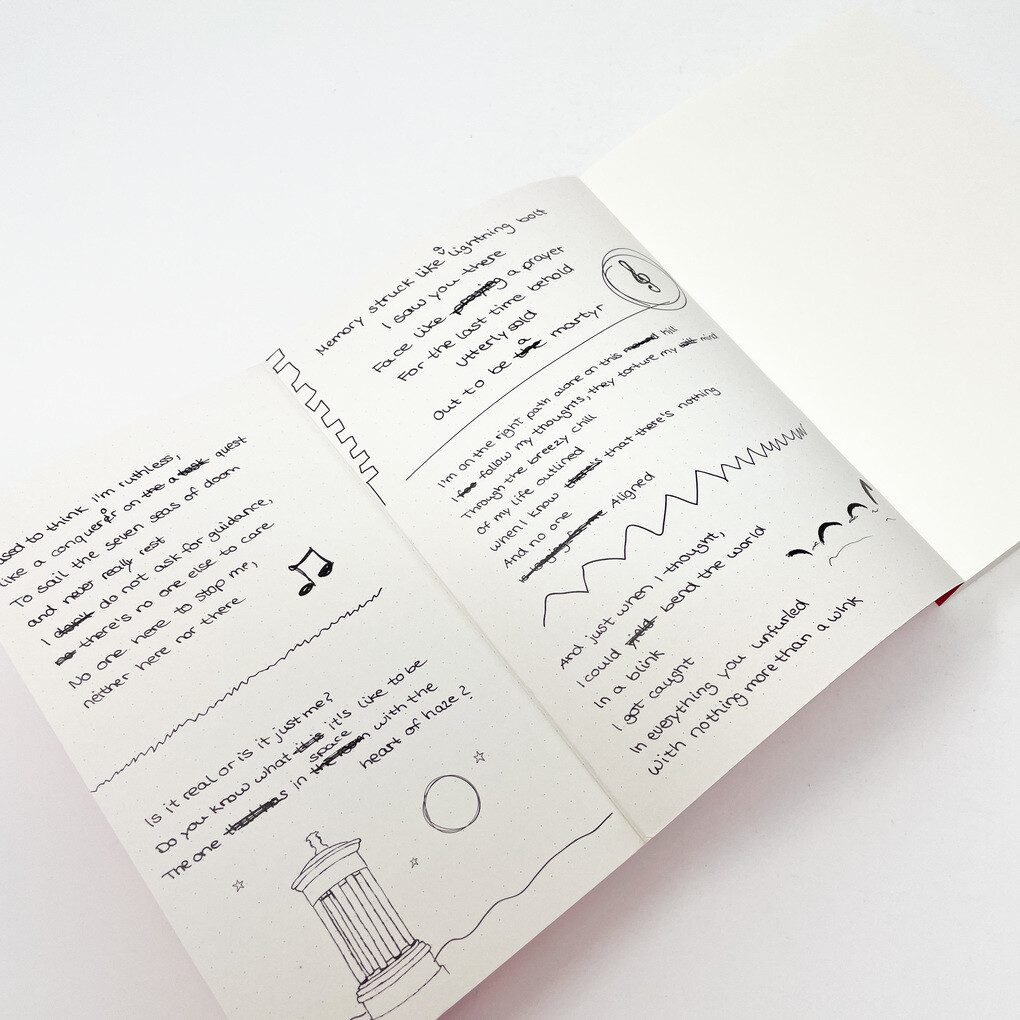 used to think I'm ruthless,
like a conqueror on the a task quest
To sail the seven seas of doom
and never really rest
I dont do not ask for guidance,
so there's no one else to care
No one here to stop me,
neither here nor there
Is it real or is it just me?
Do you know what it is it's like to be
The one in the room space with the
heart of haze?
Memory struck like a lightning bolt
I saw you there
Face like praying a prayer
For the last time behold
Utterly sold
Out to be the a martyr
I'm on the right path alone on this hill
I foo follow my thoughts, they torture my mind
Through the breezy chill
Of my life outlined
when I know there's that there's nothing
And no one
Aligned
And just when I thought,
I could yield bend the world
In a blink
I got caught
In everything you unfurled
With nothing more than a wink